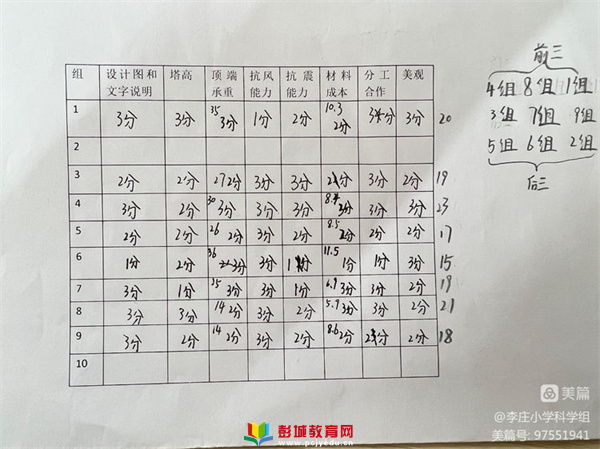 组 设计图和文字说明 塔高 顶端承重 抗风能力 抗震能力 材料成本 分工合作 美观
1 3分 3分 35 3分 1分 2分 10.3 2分 3分 3分 20
2
3 2分 2分 27 2分 3分 3分 2分 3分 2分 19
4 3分 2分 30 3分 3分 3分 3分 3分 3分 23
5 2分 2分 26 2分 3分 2分 8.5 2分 2分 2分 17
6 1分 2分 36 3分 3分 1分 11.5 1分 1分 3分 15
7 3分 1分 35 3分 3分 1分 6.9 3分 3分 2分 19
8 3分 3分 14 2分 3分 2分 5.9 3分 3分 2分 21
9 3分 2分 14 2分 3分 2分 8.6 2分 2分 2分 18
10
前三
4组 8组 1组
3组 7组 9组
5组 6组 2组
后三
彭城教育网
www.pcjyedu.cn
美篇
@李庄小学科学组
美篇号: 97551941